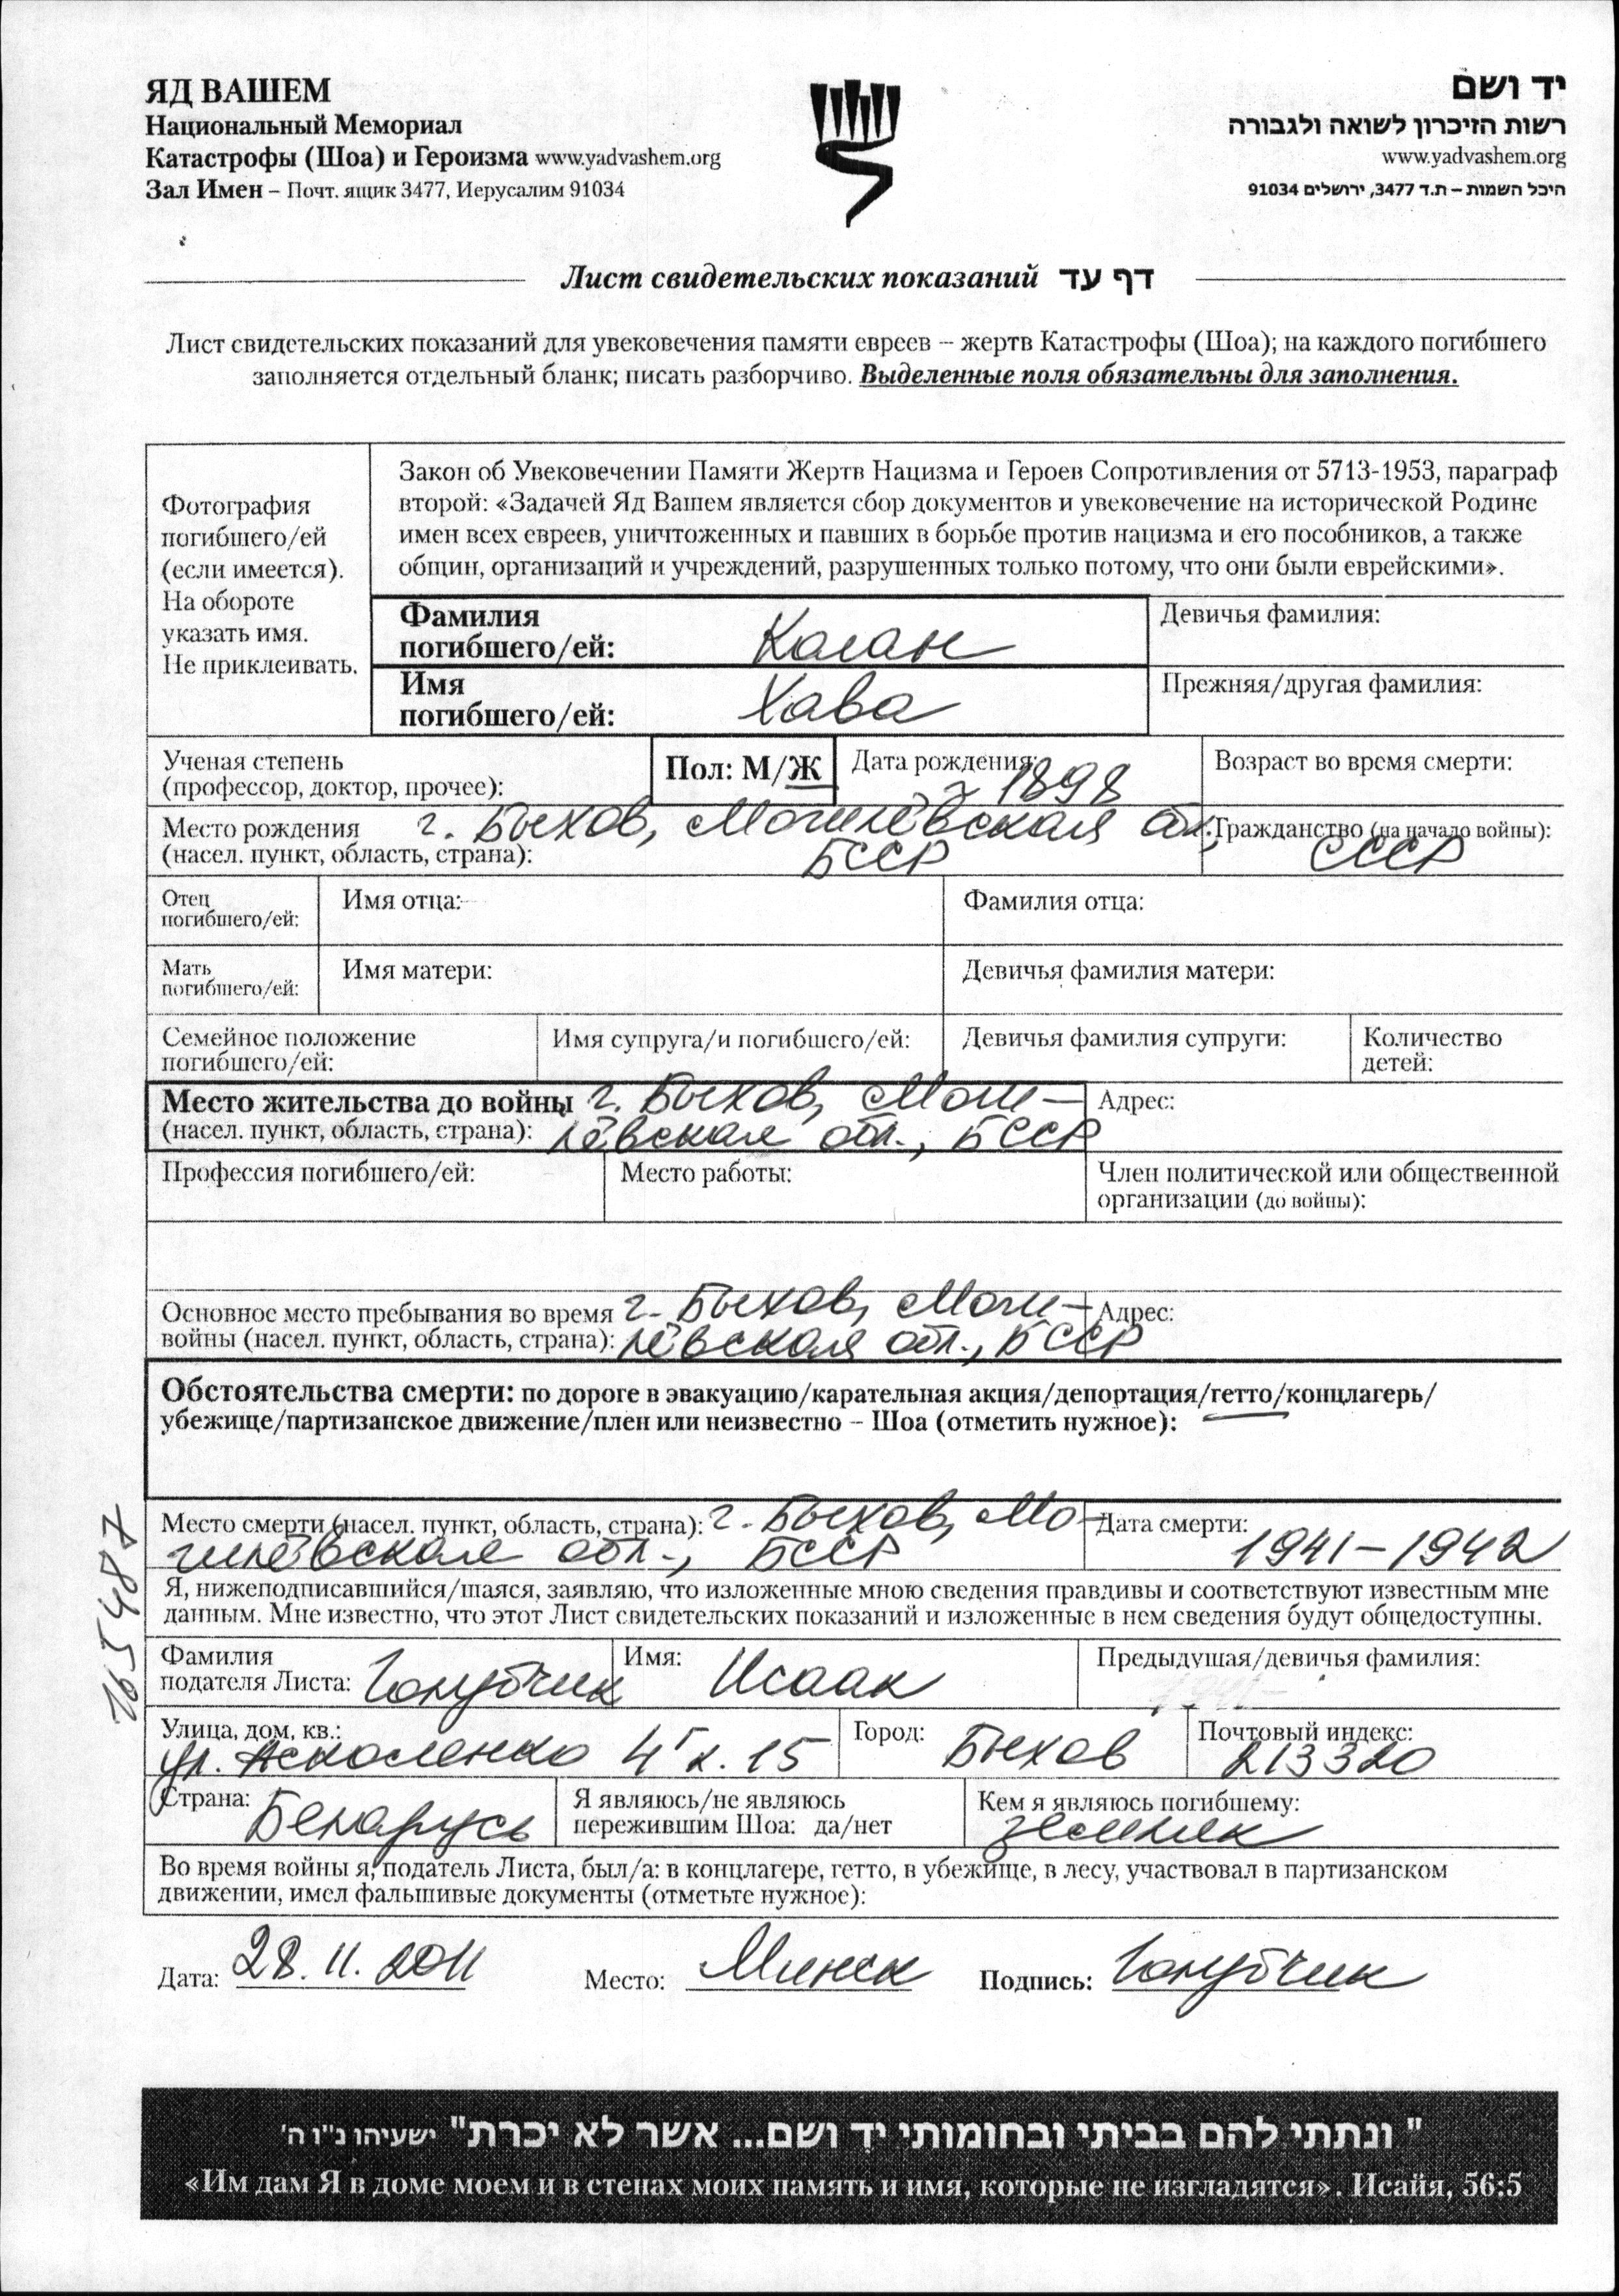 ЯД ВАШЕМ
Национальный Мемориал
Катастрофы (Шоа) и Героизма www.yadvashem.org
Зал Имен – Почт. ящик 3477, Иерусалим 91034
יד ושם
רשות הזיכרון לשואה ולגבורה
www.yadvashem.org
היכל השמות – ת.ד 3477, ירושלים 91034
Лист свидетельских показаний דף עד
Лист свидетельских показаний для увековечения памяти евреев – жертв Катастрофы (Шоа); на каждого погибшего
заполняется отдельный бланк; писать разборчиво. Выделенные поля обязательны для заполнения.
Фотография
погибшего/ей
(если имеется).
На обороте
указать имя.
Не приклеивать.
Закон об Увековечении Памяти Жертв Нацизма и Героев Сопротивления от 5713-1953, параграф
второй: «Задачей Яд Вашем является сбор документов и увековечение на исторической Родине
имен всех евреев, уничтоженных и павших в борьбе против нацизма и его пособников, а также
общин, организаций и учреждений, разрушенных только потому, что они были еврейскими».
Фамилия
погибшего/ей: Каган
Девичья фамилия:
Имя
погибшего/ей: Хава
Прежняя/другая фамилия:
Ученая степень
(профессор, доктор, прочее):
Пол: М/Ж
Дата рождения: ~ 1898
Возраст во время смерти:
Место рождения г. Быхов, Могилёвская обл.,
(насел. пункт, область, страна): БССР
Гражданство (на начало войны):
СССР
Отец
погибшего/ей:
Имя отца:
Фамилия отца:
Мать
погибшего/ей:
Имя матери:
Девичья фамилия матери:
Семейное положение
погибшего/ей:
Имя супруга/и погибшего/ей:
Девичья фамилия супруги:
Количество
детей:
Место жительства до войны г. Быхов, Моги-
(насел. пункт, область, страна): лёвская обл., БССР
Адрес:
Профессия погибшего/ей:
Место работы:
Член политической или общественной
организации (до войны):
Основное место пребывания во время г. Быхов, Моги-
войны (насел. пункт, область, страна): лёвская обл., БССР
Адрес:
Обстоятельства смерти: по дороге в эвакуацию/карательная акция/депортация/гетто/концлагерь/
убежище/партизанское движение/плен или неизвестно – Шоа (отметить нужное):
Место смерти (насел. пункт, область, страна): г. Быхов, Мо-
гилёвская обл., БССР
Дата смерти:
1941-1942
Я, нижеподписавшийся/шаяся, заявляю, что изложенные мною сведения правдивы и соответствуют известным мне
данным. Мне известно, что этот Лист свидетельских показаний и изложенные в нем сведения будут общедоступны.
Фамилия
подателя Листа: Голубчик
Имя: Исаак
Предыдущая/девичья фамилия:
Улица, дом, кв.:
ул. 4г к. 15
Город: Быхов
Почтовый индекс:
213320
Страна: Беларусь
Я являюсь/не являюсь
пережившим Шоа: да/нет
Кем я являюсь погибшему:
земляк
Во время войны я, податель Листа, был/а: в концлагере, гетто, в убежище, в лесу, участвовал в партизанском
движении, имел фальшивые документы (отметьте нужное):
Дата: 28.11.2011 Место: Минск Подпись: Голубчик
165487
" ונתתי להם בביתי ובחומותי יד ושם... אשר לא יכרת" ישעיהו נ"ו ה'
«Им дам Я в доме моем и в стенах моих память и имя, которые не изгладятся». Исайя, 56:5